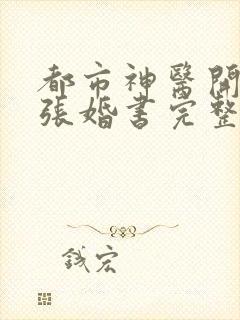 都市神醫開
張婚書完整
錢宏